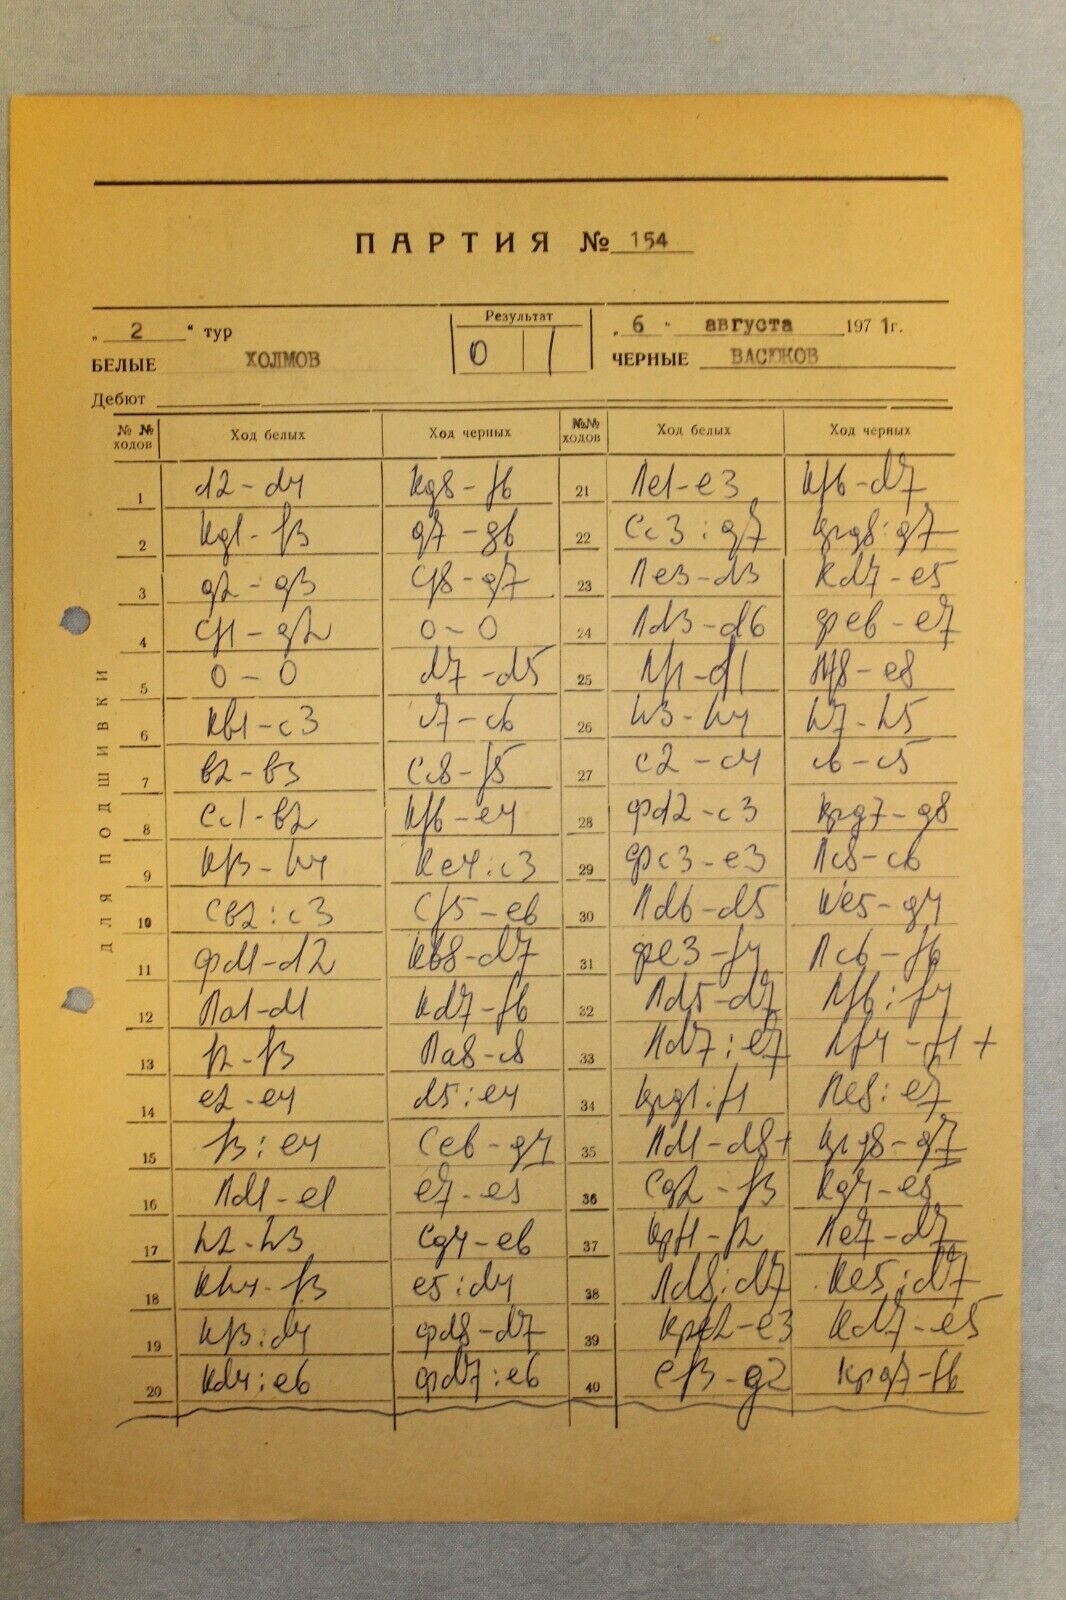 ПАРТИЯ № 154
„ 2 “ тур
Результат
0 1
„ 6 “ августа 1971г.
БЕЛЫЕ ХОЛМОВ
ЧЕРНЫЕ ВАСЮКОВ
Дебют
№ № ходов Ход белых Ход черных №№ ходов Ход белых Ход черных
1 d2-d4 Kg8-f6 21 Лe1-e3 Kf6-d7
2 Kg1-f3 g7-g6 22 Cc3:g7 Kpg8:g7
3 g2-g3 Cf8-g7 23 Лe3-d3 Kd7-e5
4 Cf1-g2 0-0 24 Лd3-d6 Фe6-e7
5 0-0 d7-d5 25 Лf1-d1 Лf8-e8
6 Kb1-c3 c7-c6 26 h3-h4 h7-h5
7 b2-b3 Cc8-f5 27 c2-c4 c6-c5
8 Cc1-b2 Kf6-e4 28 Фd2-c3 Kpg7-g8
9 Kf3-h4 Ke4:c3 29 Фc3-e3 Лc8-c6
10 Cb2:c3 Cf5-e6 30 Лd6-d5 Ke5-g4
11 Фd1-d2 Kb8-d7 31 Фe3-f4 Лc6-f6
12 Лa1-d1 Kd7-f6 32 Лd5-d7 Лf6:f4
13 f2-f3 Лa8-c8 33 Лd7:e7 Лf4-f1+
14 e2-e4 d5:e4 34 Kpg1:f1 Лe8:e7
15 f3:e4 Ce6-g4 35 Лd1-d8+ Kpg8-g7
16 Лd1-e1 e7-e5 36 Cg2-f3 Kg4-e5
17 h2-h3 Cg4-e6 37 Kpf1-f2 Лe7-d7
18 Kh4-f3 e5:d4 38 Лd8:d7 Ke5:d7
19 Kf3:d4 Фd8-d7 39 Kpf2-e3 Kd7-e5
20 Kd4:e6 Фd7:e6 40 Cf3-g2 Kpg7-f6
ДЛЯ ПОДШИВКИ